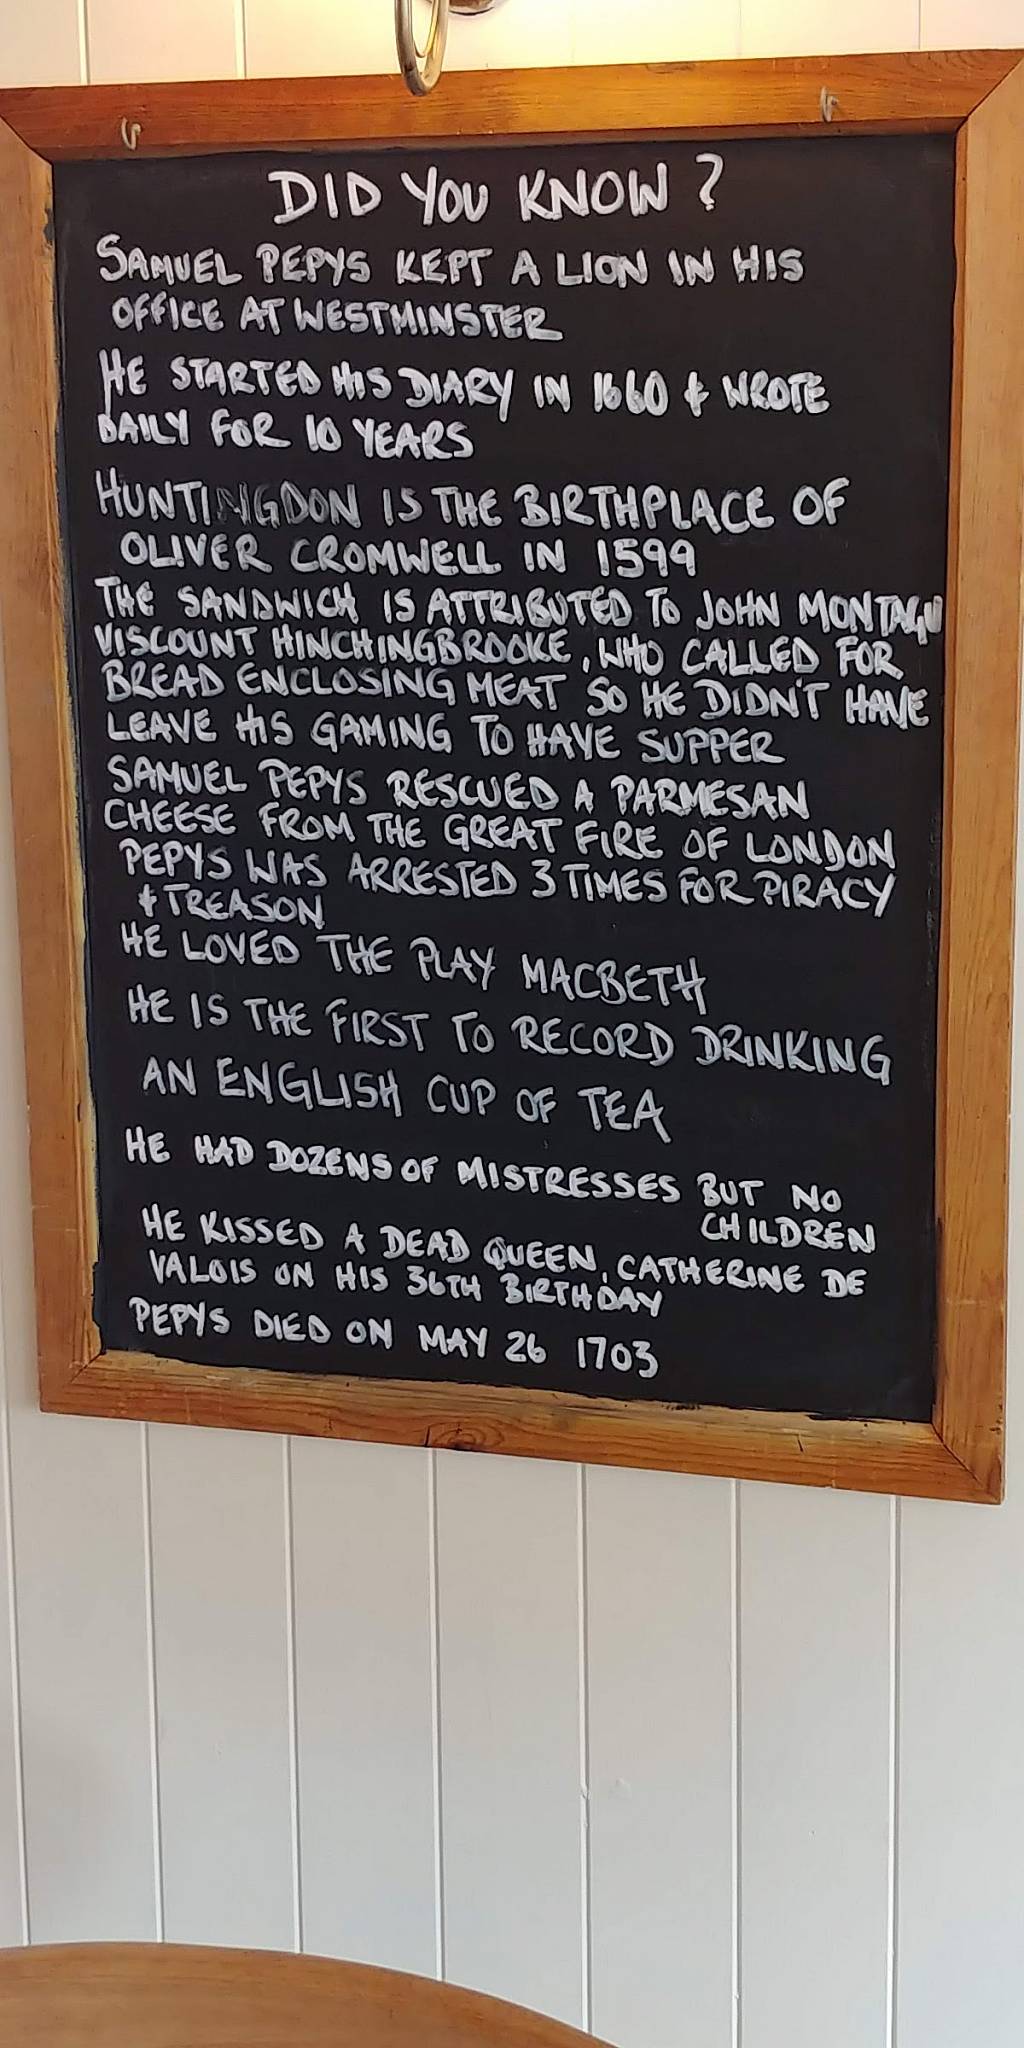 DID YOU KNOW?
SAMUEL PEPYS KEPT A LION IN HIS
OFFICE AT WESTMINSTER
HE STARTED HIS DIARY IN 1660 & WROTE
DAILY FOR 10 YEARS
HUNTINGDON IS THE BIRTHPLACE OF
OLIVER CROMWELL IN 1599
THE SANDWICH IS ATTRIBUTED TO JOHN MONTAGU
VISCOUNT HINCHINGBROOKE, WHO CALLED FOR
BREAD ENCLOSING MEAT SO HE DIDN'T HAVE
LEAVE HIS GAMING TO HAVE SUPPER
SAMUEL PEPYS RESCUED A PARMESAN
CHEESE FROM THE GREAT FIRE OF LONDON
PEPYS WAS ARRESTED 3 TIMES FOR PIRACY
& TREASON
HE LOVED THE PLAY MACBETH
HE IS THE FIRST TO RECORD DRINKING
AN ENGLISH CUP OF TEA
HE HAD DOZENS OF MISTRESSES BUT NO
CHILDREN
HE KISSED A DEAD QUEEN, CATHERINE DE
VALOIS ON HIS 36TH BIRTHDAY
PEPYS DIED ON MAY 26 1703